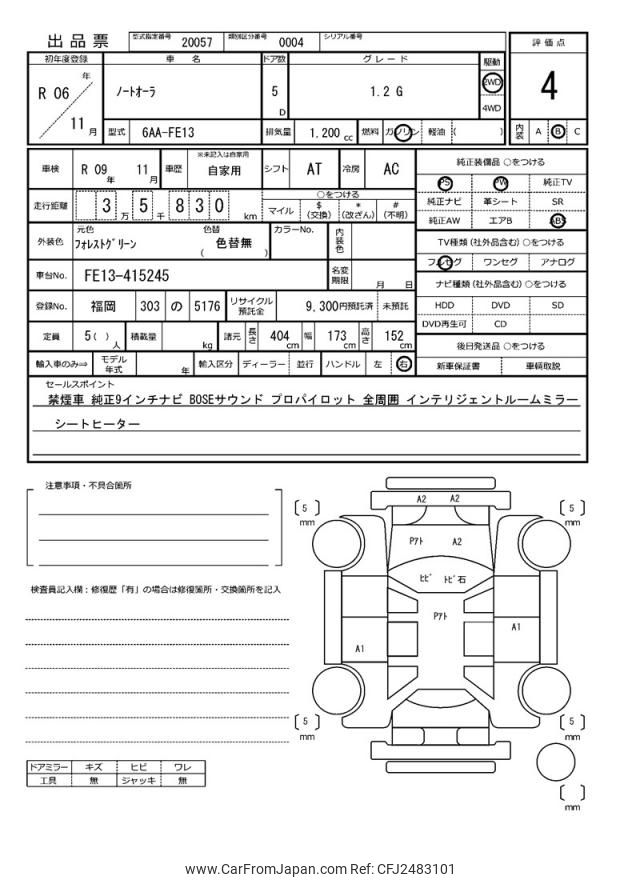 出品票 型式指定番号 20057 類別区分番号 0004 シリアル番号
初年度登録 車名 ドア数 グレード 駆動 評価点
R 06 年 11 月 ノートオーラ 5 D 1.2 G 2WD 4WD 4
型式 6AA-FE13 排気量 1,200 cc 燃料 ガソリン 軽油 ( ) 内装 A B C
車検 R 09 年 11 月 車歴 ※未記入は自家用 自家用 シフト AT 冷房 AC
純正装備品 ○をつける
PS PW 純正TV
走行距離 3 万 5 千 8 3 0 km ○をつける
マイル $ (交換) * (改ざん) # (不明)
純正ナビ 革シート SR
純正AW エアB ABS
外装色 元色 フォレストグリーン 色替 ( 色替無 ) カラーNo. 内装色
TV種類 (社外品含む) ○をつける
フルセグ ワンセグ アナログ
車台No. FE13-415245 名変期限 月 日
ナビ種類 (社外品含む) ○をつける
登録No. 福岡 303 の 5176 リサイクル預託金 9,300円預託済 未預託
HDD DVD SD
DVD再生可 CD
定員 5( ) 人 積載量 kg 諸元 長さ 404 cm 幅 173 cm 高さ 152 cm
後日発送品 ○をつける
輸入車のみ⇨ モデル年式 年 輸入区分 ディーラー 並行 ハンドル 左 右
新車保証書 車輌取説
セールスポイント
禁煙車 純正9インチナビ BOSEサウンド プロパイロット 全周囲 インテリジェントルームミラー
シートヒーター
注意事項・不具合箇所
検査員記入欄：修復歴「有」の場合は修復箇所・交換箇所を記入
[ 5 ] mm A2 A2 [ 5 ] mm
Pアト A2
ヒビ トビ石
Pアト
A1 A1
[ 5 ] mm [ 5 ] mm
[ ] mm
ドアミラー キズ ヒビ ワレ
工具 無 ジャッキ 無
www.CarFromJapan.com Ref: CFJ2483101